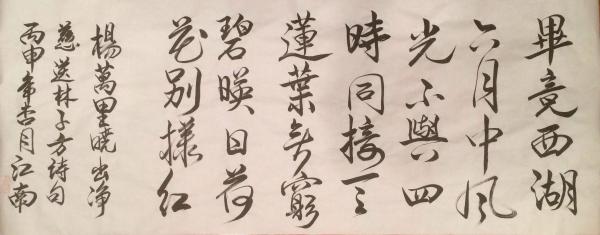 畢竟西湖
六月中風
光不與四
時同接天
蓮葉無窮
碧暎日荷
花別樣紅
楊萬里曉出净
慈送林子方詩句
丙申年杏月江南